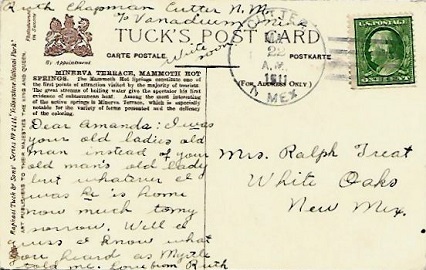 Ruth Chapman Cutter N.M.
% Vanadium Mine
Write soon
TUCK'S POST CARD
By Appointment
CARTE POSTALE
POSTKARTE
22
A.M.
1911
N. MEX
U.S. POSTAGE
ONE CENT
(FOR ADDRESS ONLY)
MINERVA TERRACE, MAMMOTH HOT
SPRINGS. The Mammoth Hot Springs constitute one of
the first points of attraction visited by the majority of tourists.
The great streams of boiling water give the spectator his first
evidence of subterranean heat. Among the most interesting
of the active springs is Minerva Terrace, which is especially
notable for the variety of forms presented and the delicacy
of the coloring.
Dear Amanda: I was
your old ladies old
man instead of your
old man's old lady
but whatever I
was he is home
now much to my
sorrow. Well I
guess I know what
you heard as Myrtle
told me. Love from Ruth
Mrs. Ralph Treat
White Oaks
New Mex.
Raphael Tuck & Sons' Series No 2111 "Yellowstone National Park"
ART PUBLISHERS TO THEIR MAJESTIES THE KING AND QUEEN